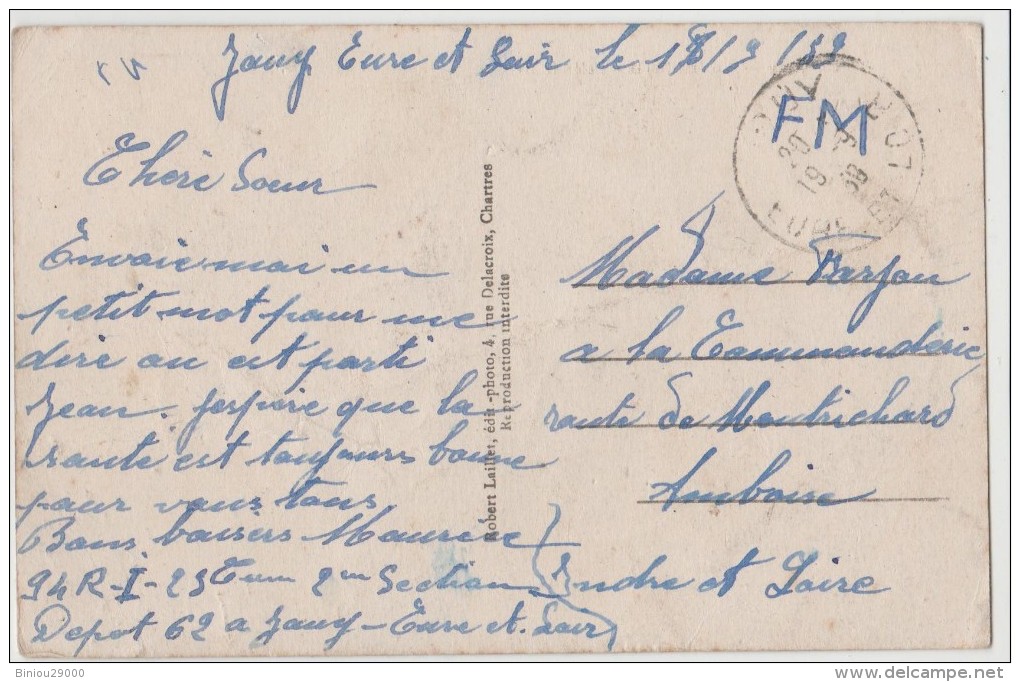 Jouy Eure et Loir le 18/9/39
FM
20
19 39
EURE ET LOIR
Chère Soeur
Envoie moi un
petit mot pour me
dire ou est parti
Jean. J'espère que la
santé est toujours bonne
pour vous tous
Bons baisers Maurice
94 R-I-25 2em Section
Depot 62 a Jouy-Eure et Loir
Robert Laillet, édit-photo, 4, rue Delacroix, Chartres
Reproduction interdite
Madame Barjou
a la Commanderie
route de Montrichard
Amboise
Indre et Loire
Biniou29000
delcampe.net